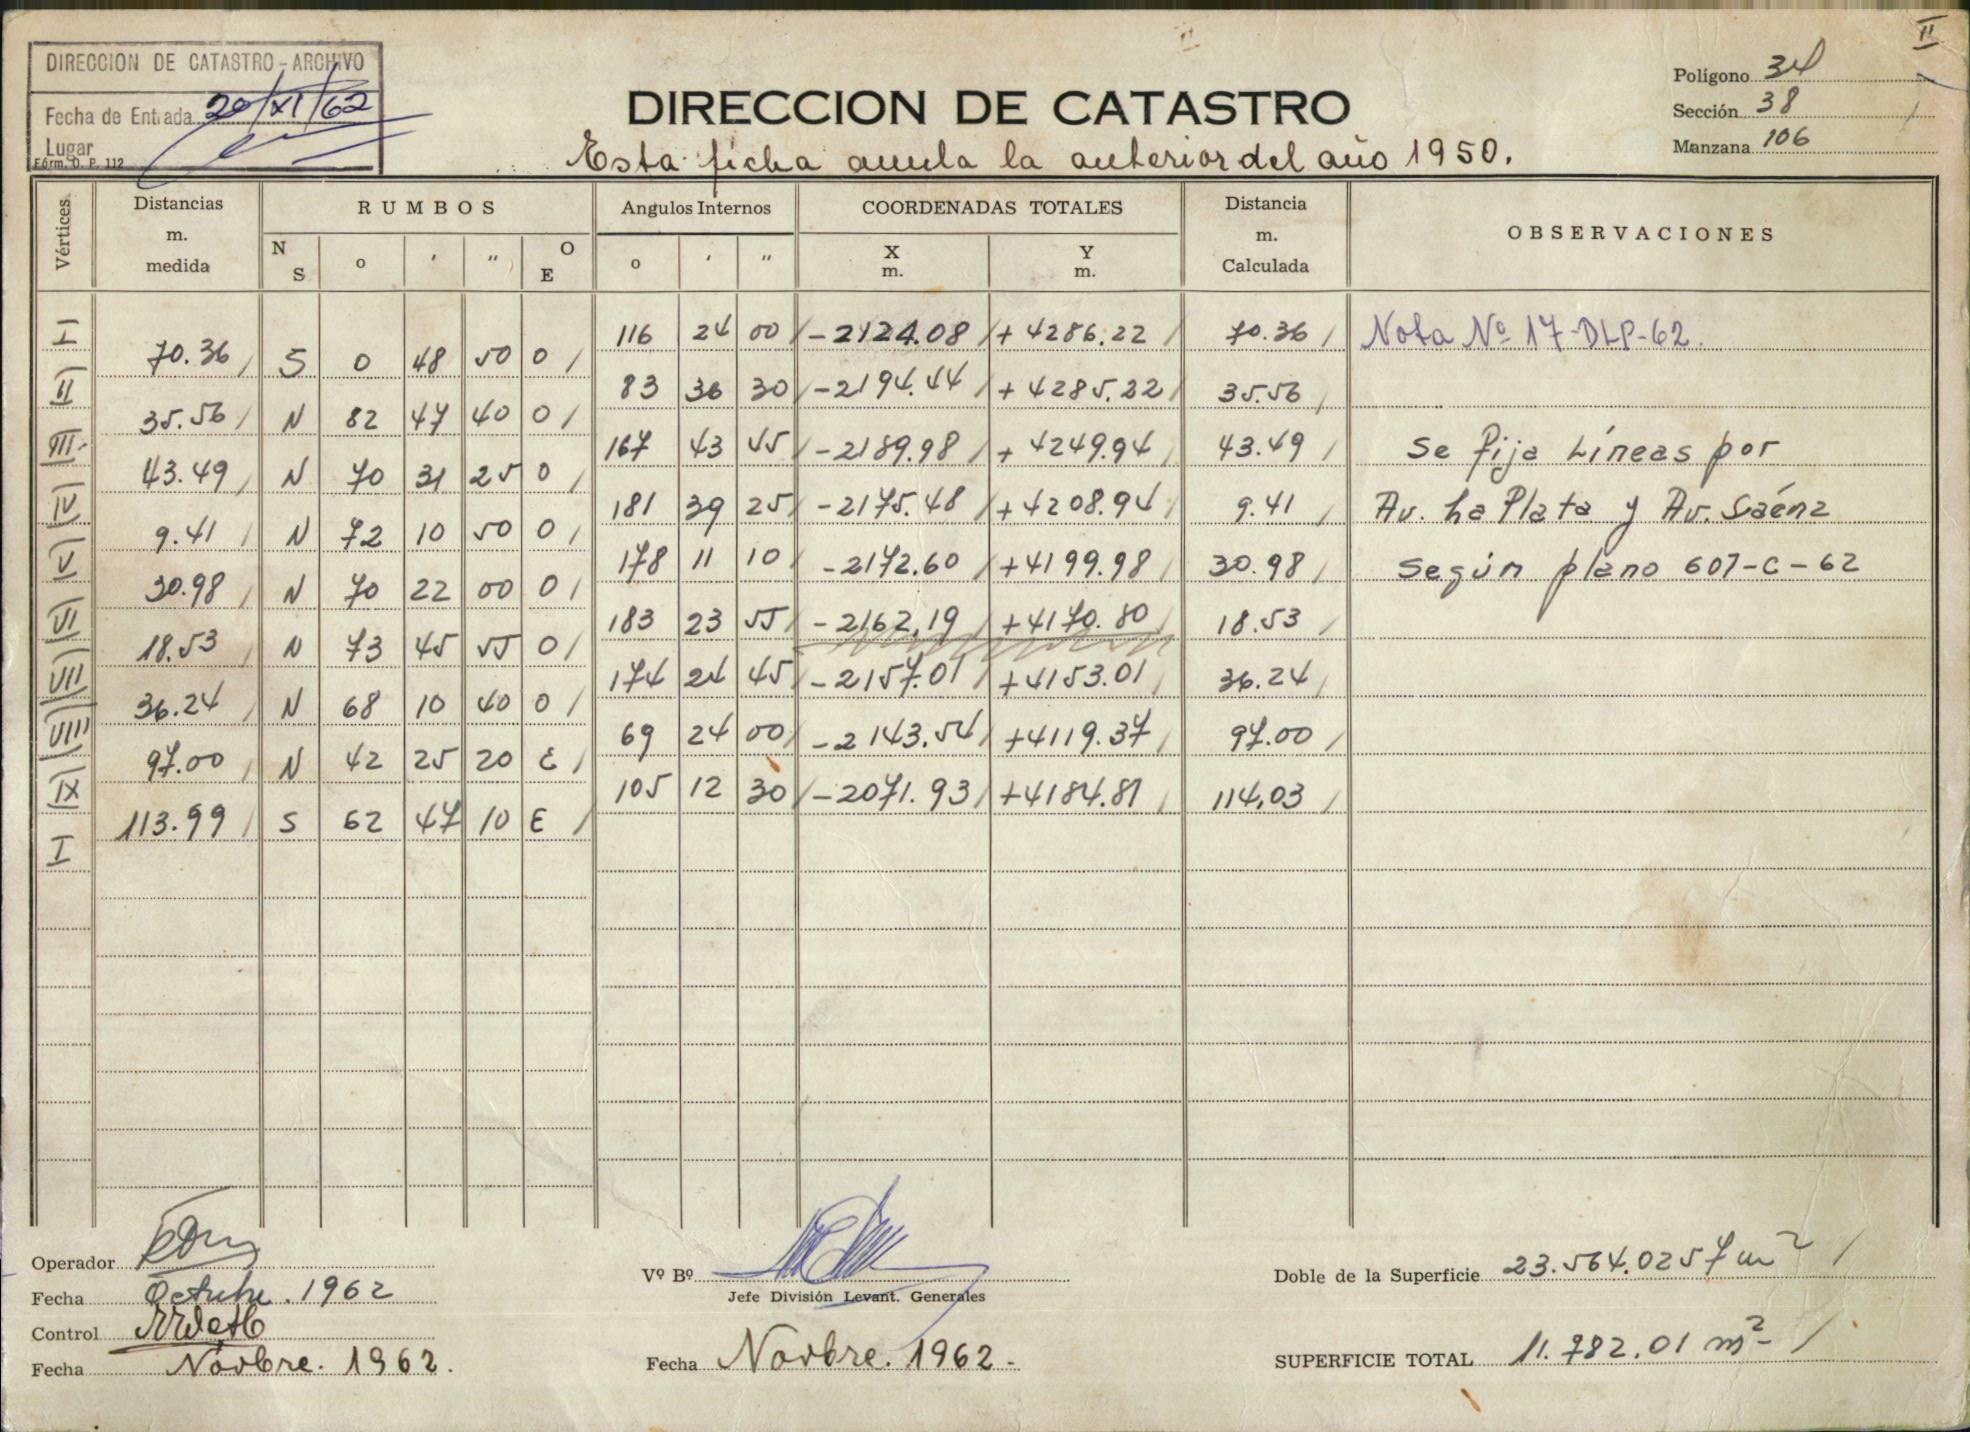 II
DIRECCION DE CATASTRO - ARCHIVO
Fecha de Entrada 20/XI/62
Lugar
Fórm. O. P. 112
DIRECCION DE CATASTRO
Esta ficha anula la anterior del año 1950.
Polígono 34
Sección 38
Manzana 106
Vértices Distancias m. medida RUMBOS Angulos Internos COORDENADAS TOTALES Distancia m. Calculada OBSERVACIONES
N S o ' " O E o ' " X m. Y m.
I 116 24 00 -2124.08 +4286.22 70.36 Nota Nº 17-DLP-62.
70.36 S 0 48 50 O
II 83 36 30 -2194.44 +4285.22 35.56
35.56 N 82 47 40 O
III 167 43 45 -2189.98 +4249.94 43.49 Se fija Líneas por
43.49 N 70 31 25 O
IV 181 39 25 -2175.48 +4208.94 9.41 Av. La Plata y Av. Sáenz
9.41 N 72 10 50 O
V 178 11 10 -2172.60 +4199.98 30.98 según plano 607-C-62
30.98 N 70 22 00 O
VI 183 23 55 -2162,19 +4170.80 18.53
18.53 N 73 45 55 O
VII 174 24 45 -2157.01 +4153.01 36.24
36.24 N 68 10 40 O
VIII 69 24 00 -2143.54 +4119.37 97.00
97.00 N 42 25 20 E
IX 105 12 30 -2071.93 +4184.81 114,03
113.99 S 62 47 10 E
I
Operador
Fecha Octubre. 1962
Control
Fecha Novbre. 1962.
Vº Bº
Jefe División Levant. Generales
Fecha Novbre. 1962.-
Doble de la Superficie 23.564.0257 m²
SUPERFICIE TOTAL 11.782.01 m²-